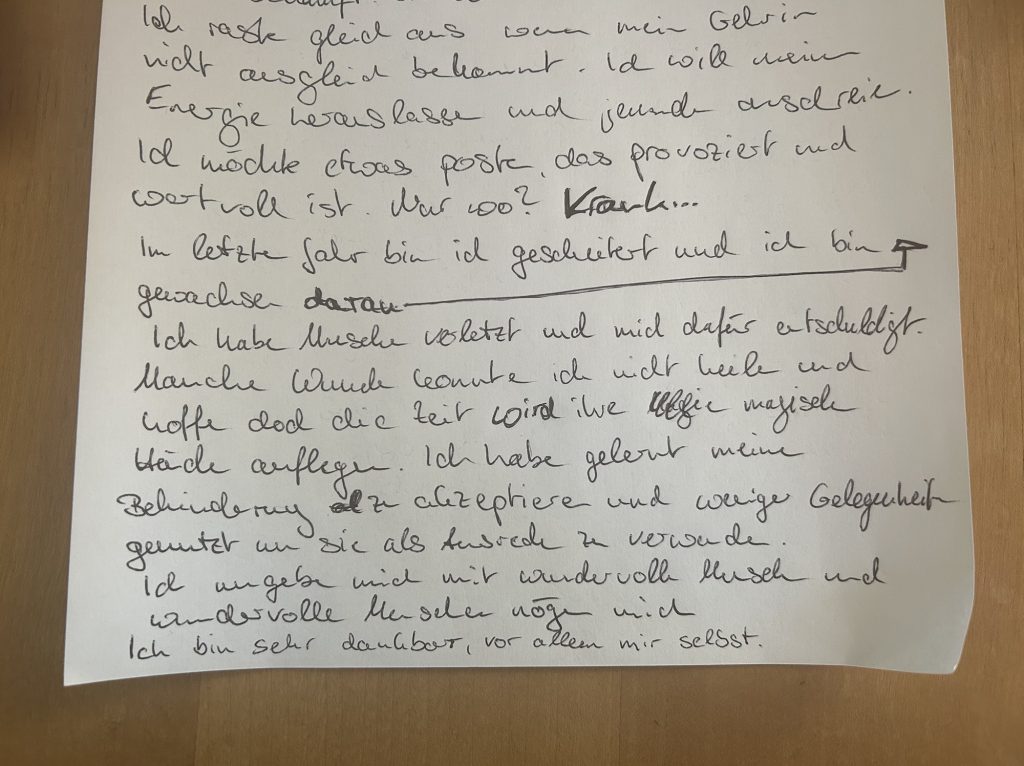 Ich raste gleich aus wenn mein Gehirn
nicht ausgleich bekommt. Ich will meine
Energie herauslassen und jemanden anschreien.
Ich möchte etwas posten, das provoziert und
wertvoll ist. Nur wo? Krank...
Im letzten Jahr bin ich gescheitert und ich bin
gewachsen daran
Ich habe Menschen verletzt und mich dafür entschuldigt.
Manche Wunden konnte ich nicht heilen und
hoffe doch die Zeit wird ihre magischen
Hände auflegen. Ich habe gelernt meine
Behinderung zu akzeptieren und weniger Gelegenheiten
genutzt um sie als Ausrede zu verwenden.
Ich umgebe mich mit wundervollen Menschen und
wundervolle Menschen mögen mich
Ich bin sehr dankbar, vor allem mir selbst.